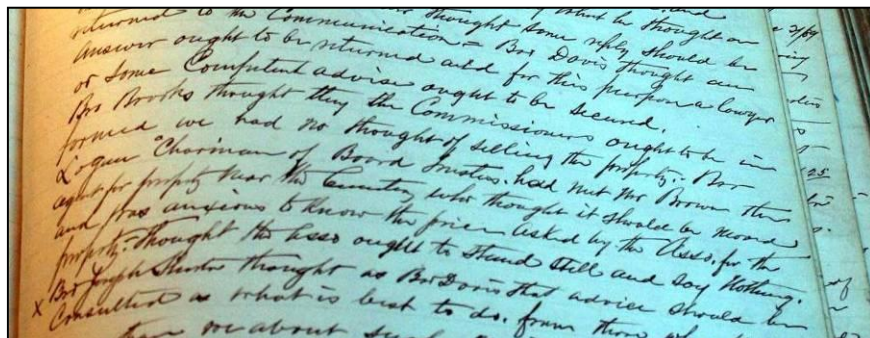 thought some reply should be
returned to the Communication - Bro Davis thought an
answer ought to be returned and for this purpose a lawyer
or some Competent advise ought to be secured.
Bro Brooks thought they the Commissioners ought to be in
formed we had no thought of selling the property. Bro
Logan "Chairman of Board Trustees. had met Mr Brown the
agent for property near the Cemetery who thought it should be moved
and was anxious to know the price asked by the Asso. for the
property. Thought the Asso ought to stand still and say Nothing.
X Bro Joseph thought as Bro Davis that advice should be
Consulted as what is best to do. from those who
about